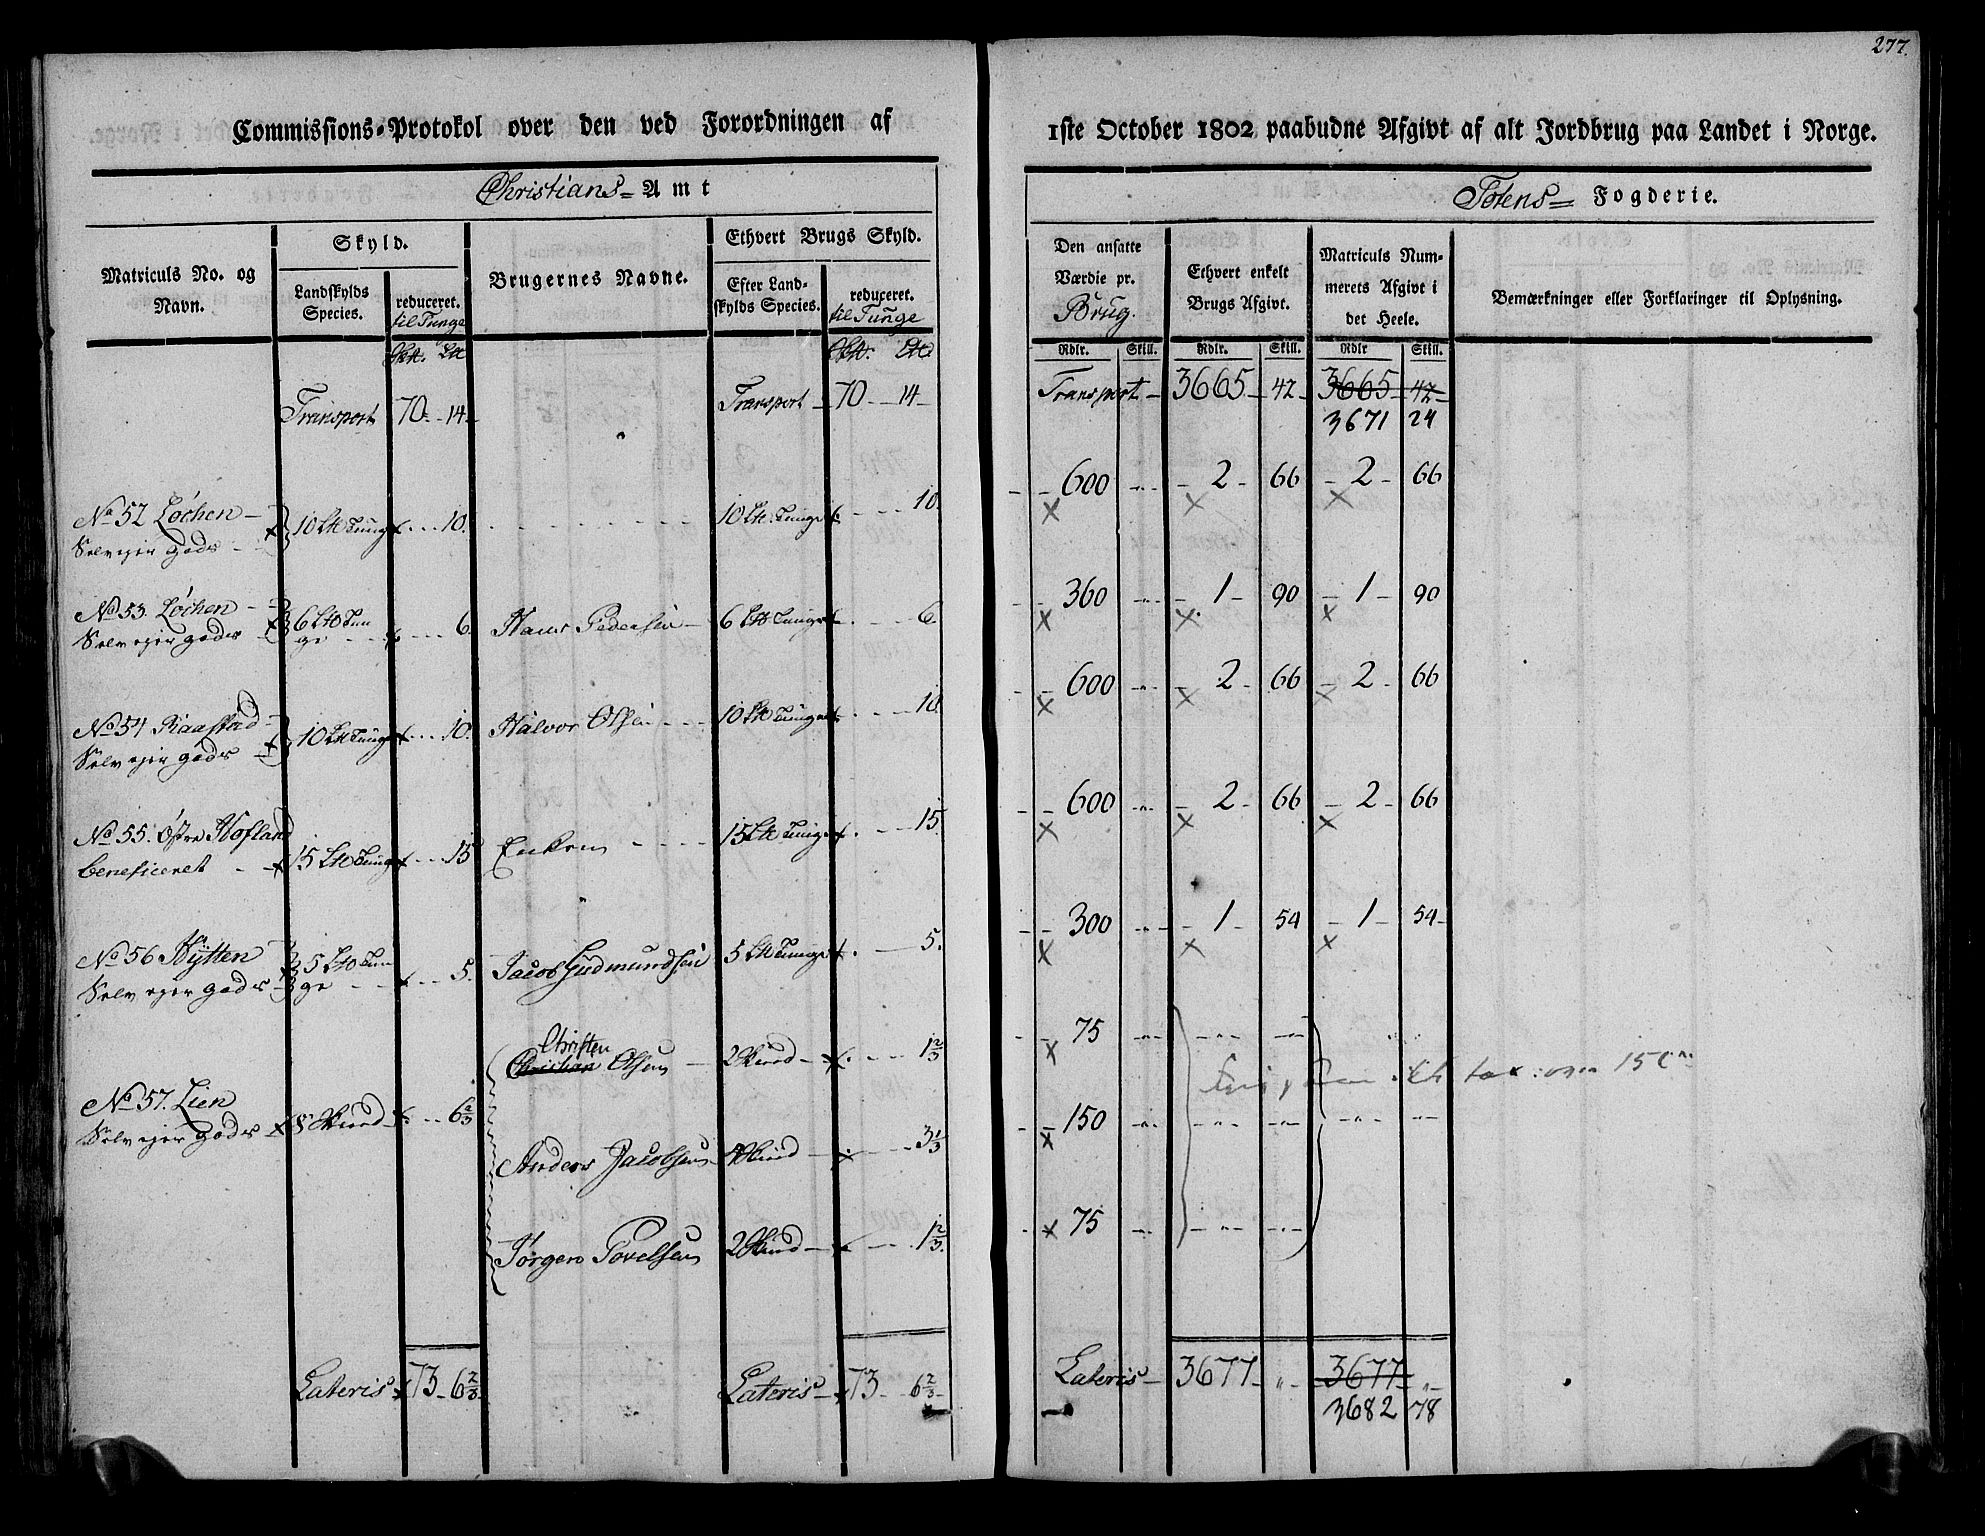 277.
Commissions-Protokol over den ved Forordningen af 1ste October 1802 paabudne Afgivt af alt Jordbrug paa Landet i Norge.
Christians- Amt
Totens- Fogderie.
Matriculs No. og Navn.
Skyld.
Landskylds Species.
reduceret. til Tunge
Brugernes Navne.
Ethvert Brugs Skyld.
Efter Landskylds Species.
reduceret. til Tunge
Den ansatte Værdie pr. Brug.
Ethvert enkelt Brugs Afgivt.
Matriculs Nummerets Afgivt i det Heele.
Bemærkninger eller Forklaringer til Oplysning.
Rdlr. Skill. Rdlr. Skill. Rdlr Skill.
Transport 70. 14. Transport 70 14 Transport 3665 42 3665 42
3671 24
No 52 Løchen
Selvejer gods 10 Lb Tunge 10. 10 Lb. Tunge 10. 600 2 66 2 66
No 53. Løchen
Selvejer gods 6 Lb Tunge 6. Hans Pedersen 6 Lb Tunge 6. 360 1 90 1 90
No 54 Raastad
Selvejer gods 10 Lb Tunge 10. Halvor Olsen 10 Lb Tunge 10. 600 2 66 2 66
No 55. Østre Hofland
beneficeret 15 Lb Tunge 15 Enken 15 Lb Tunge 15. 600 2 66 2 66
No 56 Hÿtten
Selvejer gods 5 Lb Tunge 5. Jacob Gudmundsen 5 Lb Tunge 5. 300 1 54 1 54
Christen
Christian Olsen 2 Hud 1 2/3 75
No 57. Lien
Selvejer gods 8 Hud 6 2/3
Anders Jacobsen 4 Hud 3 1/3 150
Jørgen Povelsen 2 Hud 1 2/3. 75
Lateris 73 6 2/3 Lateris 73 6 2/3 Lateris 3677 " 3677 "
3682 78